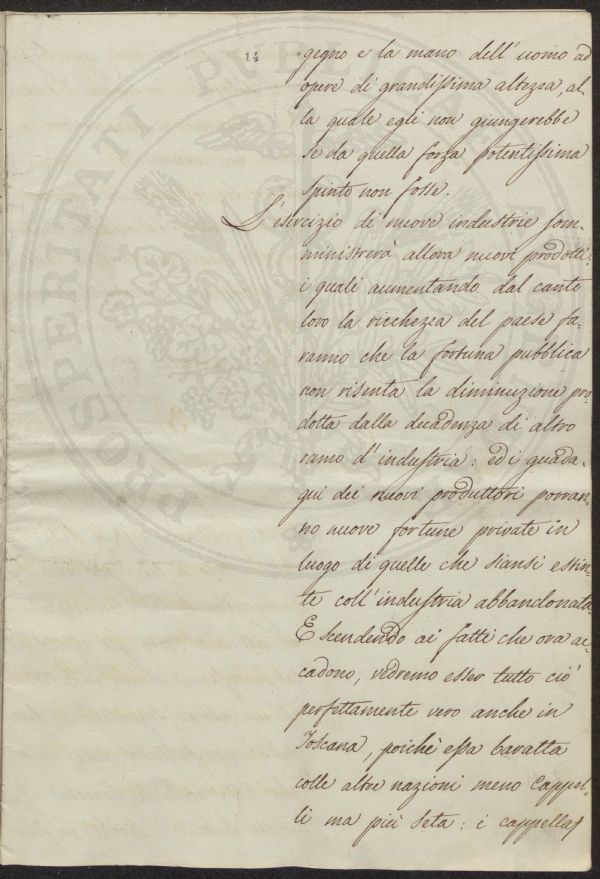 14
gegno e la mano dell'uomo ad
opere di grandissima altezza, al-
la quale egli non giungerebbe
se da quella forza potentissima
spinto non fosse.
L'esercizio di nuove industrie som-
ministrerà allora nuovi prodotti:
i quali aumentando dal canto
loro la ricchezza del paese fa-
ranno che la fortuna pubblica
non risenta la diminuzione pro-
dotta dalla decadenza di altro
ramo d'industria: ed i guada-
gni dei nuovi produttori porran-
no nuove fortune private in
luogo di quelle che siansi estin-
te coll'industria abbandonata.
E scendendo ai fatti che ora ac-
cadono, vedremo esser tutto ciò
perfettamente vero anche in
Toscana, poichè essa baratta
colle altre nazioni meno Cappel-
li ma più seta: i cappellaj
POSTERITATI PUBLICA